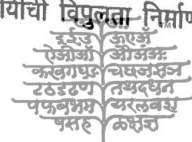 यांची विपुलता निर्माण
इ ई उ ऊ ए ऐ
ऐ ओ औ ओ अं अः
क ख ग घ ङ च छ ज झ ञ
ट ठ ड ढ ण त थ द ध न
प फ ब भ म य र ल व श
ष स ह ळ क्ष ज्ञ